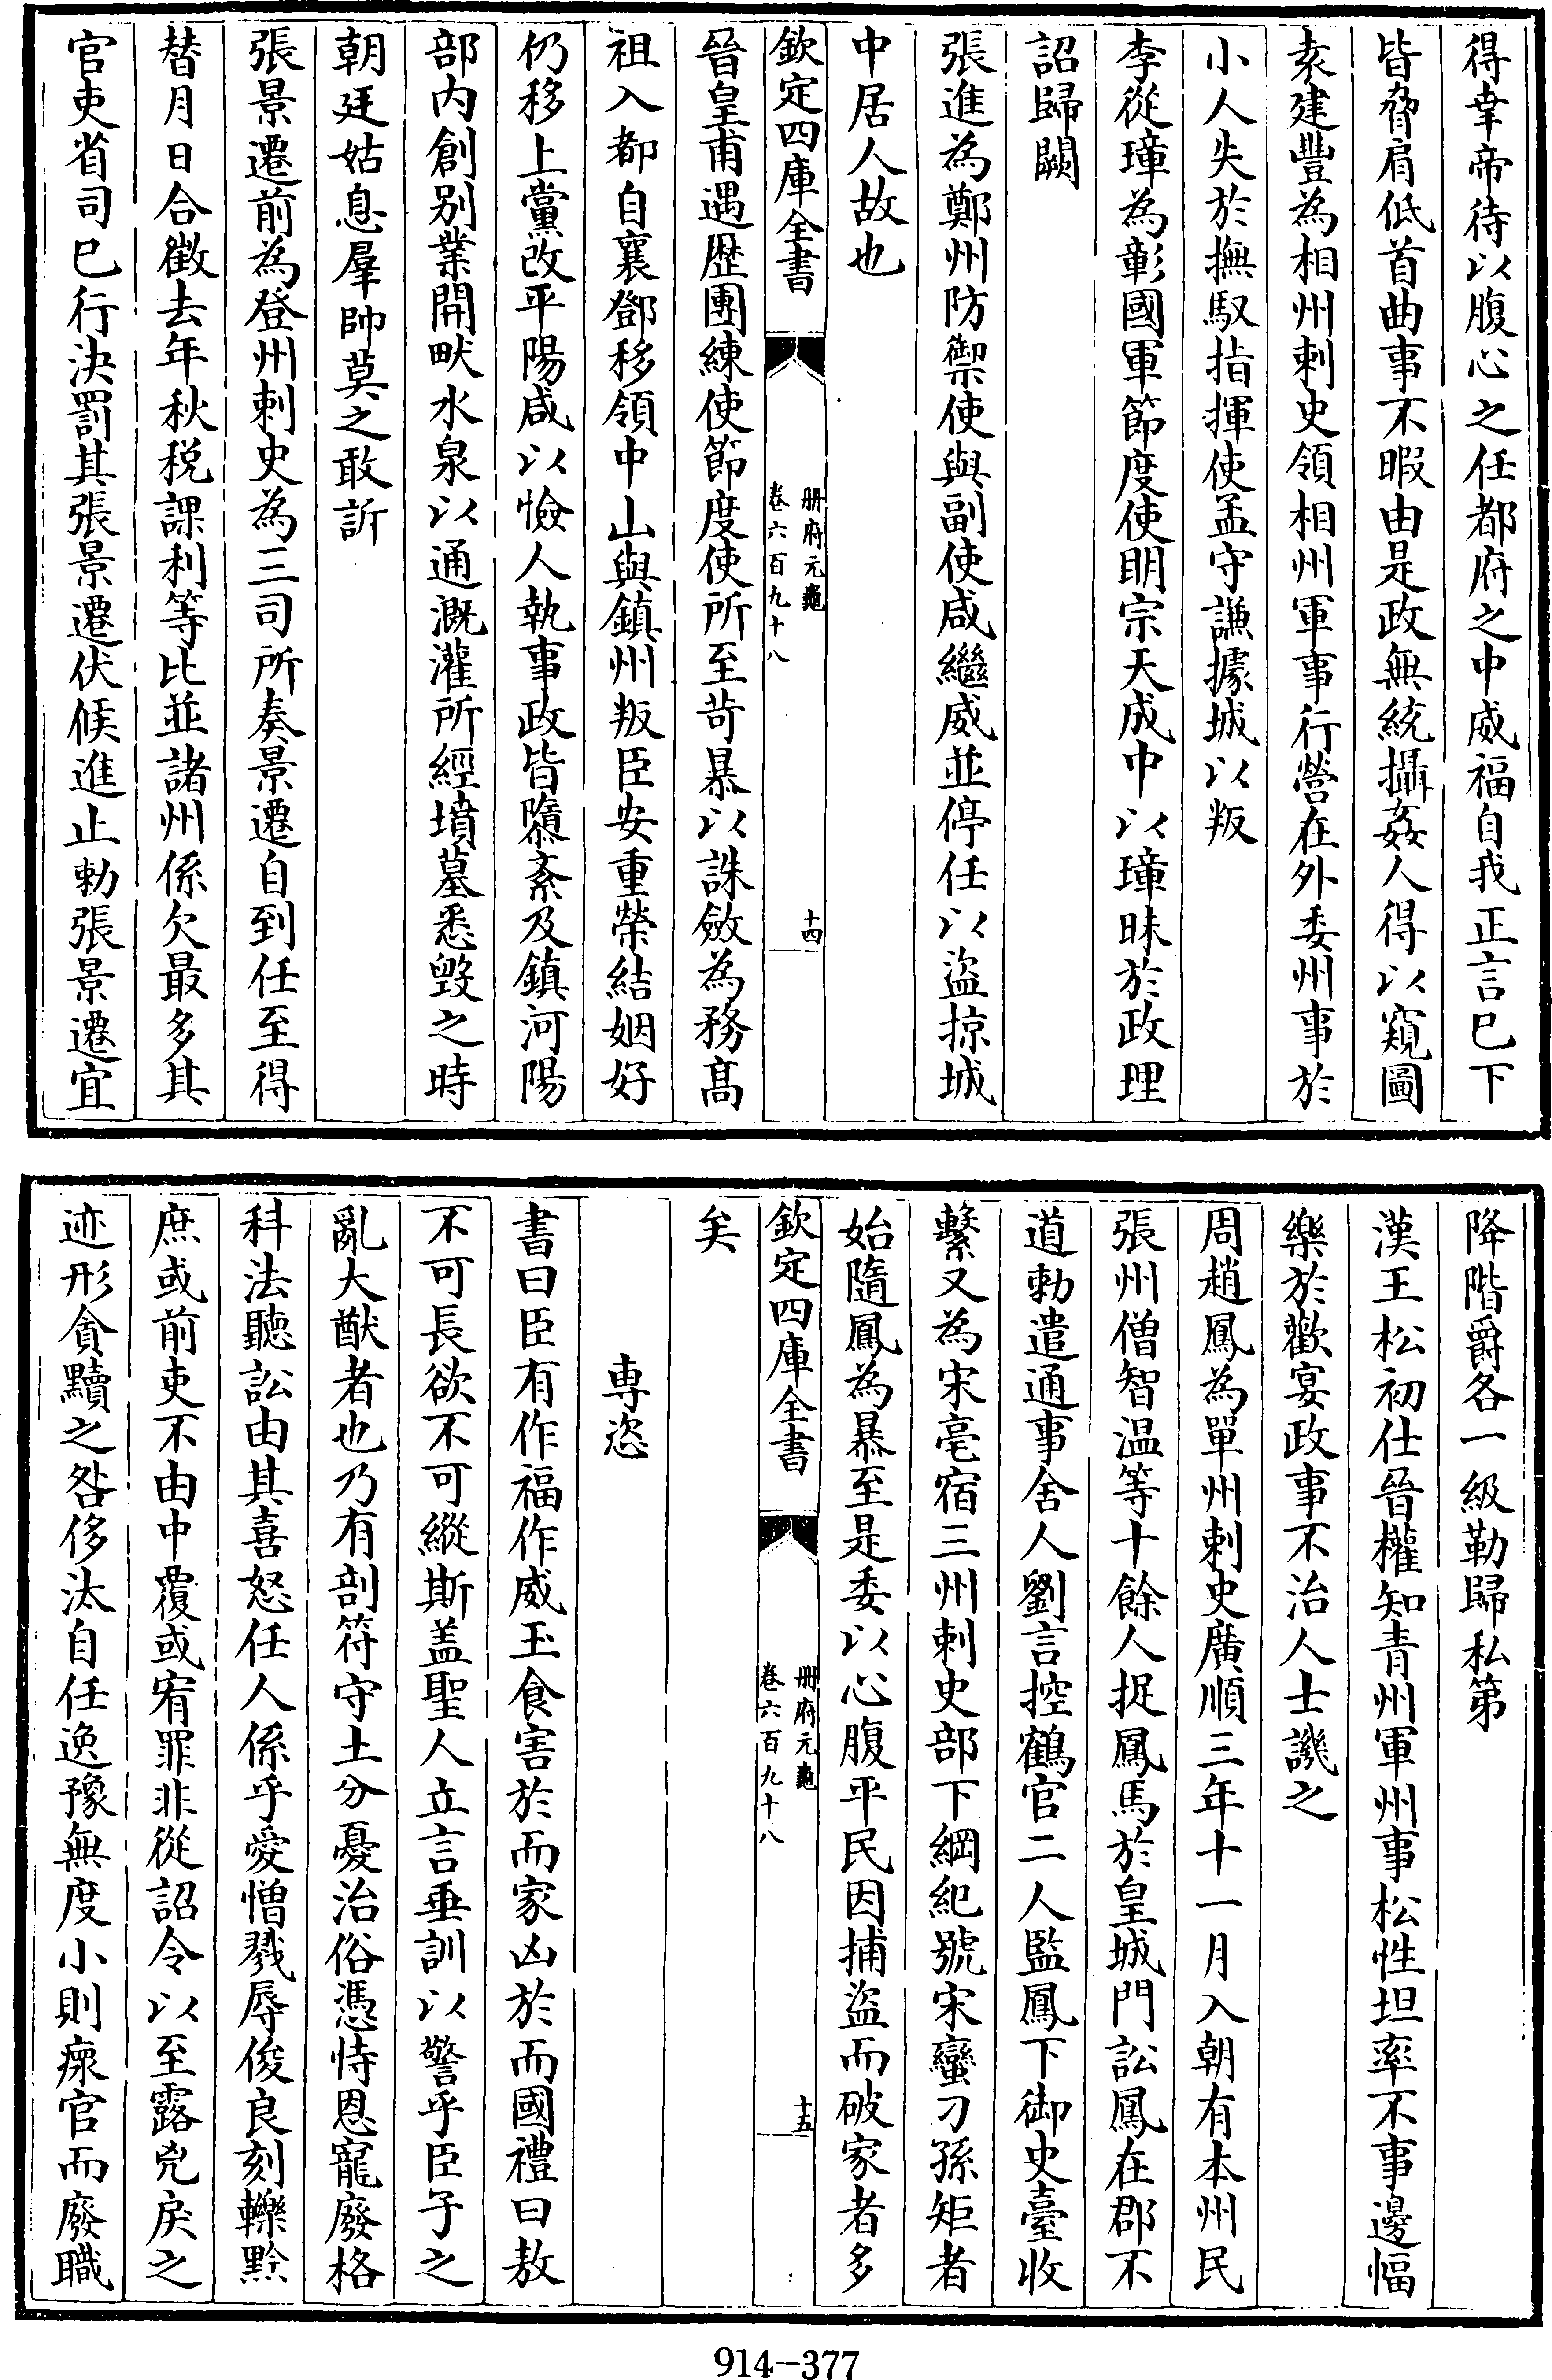 得幸帝待以腹心之任都府之中威福自我正言已下
皆脅肩低首曲事不暇由是政無統攝姦人得以窺圖
袁建豐為相州刺史領相州軍事行營在外委州事於
小人失於撫馭指揮使孟守謙據城以叛
李從璋為彰國軍節度使明宗天成中以璋昧於政理
詔歸闕
張進為鄭州防禦使與副使咸繼威並停任以盜掠城
中居人故也
欽定四庫全書
冊府元龜
卷六百九十八
十四
晉皇甫遇歷團練使節度使所至苛暴以誅斂為務高
祖入都自襄鄧移領中山與鎮州叛臣安重榮結姻好
仍移上黨改平陽咸以憸人執事政皆隳紊及鎮河陽
部內創别業開畎水泉以通溉灌所經墳墓悉毀之時
朝廷姑息羣帥莫之敢訢
張景遷前為登州刺史為三司所奏景遷自到任至得
替月日合徵去年秋稅課利等比並諸州係欠最多其
官吏省司已行決罰其張景遷伏候進止勅張景遷宜
降階爵各一級勒歸私第
漢王松初仕晉權知青州軍州事松性坦率不事邊幅
樂於歡宴政事不治人士譏之
周趙鳳為單州刺史廣順三年十一月入朝有本州民
張州僧智温等十餘人捉鳳馬於皇城門訟鳳在郡不
道勅遣通事舍人劉言控鶴官二人監鳳下御史臺收
繫又為宋亳宿三州刺史部下綱紀號宋蠻刁孫矩者
始隨鳳為暴至是委以心腹平民因捕盜而破家者多
欽定四庫全書
冊府元龜
卷六百九十八
十五
矣
專恣
書曰臣有作福作威玉食害於而家凶於而國禮曰敖
不可長欲不可縱斯盖聖人立言垂訓以警乎臣子之
亂大猷者也乃有剖符守土分憂治俗憑恃恩寵廢格
科法聽訟由其喜怒任人係乎愛憎戮辱俊良刻轢黔
庶或前吏不由中覆或宥罪非從詔令以至露兇戾之
迹形貪黷之咎侈汰自任逸豫無度小則瘝官而廢職
914-377